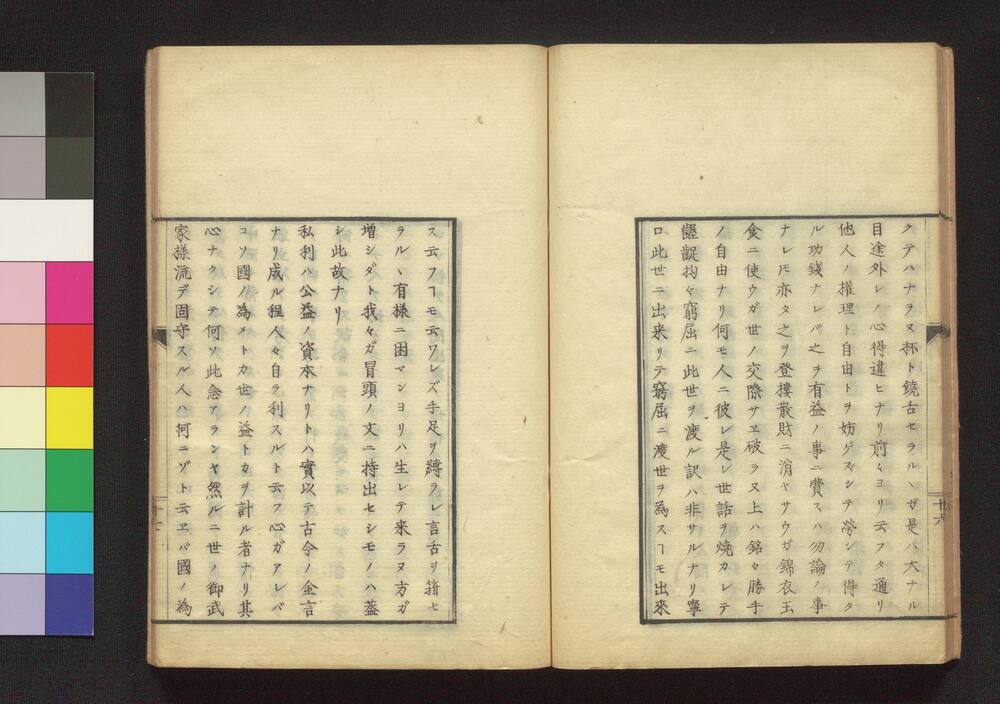 クテハナラヌ抔ト饒舌セラルヽガ是レ大ナル
目途外レノ心得違ヒナリ前々ヨリ云フタ通リ
他人ノ權理ト自由トヲ妨ゲズシテ勞シテ得タ
ル功錢ナレバ之ヲ有益ノ事ニ費スハ勿論ノ事
ナレ𪜈亦タ之ヲ登摟散財ニ消ヤサウガ錦衣玉
食ニ使ウガ世ノ交際サヱ破ラヌ上ハ銘々勝手
ノ自由ナリ何モ人ニ彼レ是レ世話ヲ燒カレテ
齷齪拘々窮屈ニ此世ヲ渡ル訳ハ非サルナリ寧
ロ此世ニ出来リテ窮屈ニ渡世ヲ為スヿモ出來
廿六
ス云フヿモ云ワレズ手足ヲ縛ラレ言舌ヲ箝セ
ラルヽ有様ニ困マンヨリハ生レテ来ラヌ方ガ
增シダト我々ガ冒頭ノ文ニ持出セシモノハ蓋
シ此故ナリ
私利ハ公益ノ資本ナリトハ實以テ古今ノ金言
ナリ成ル程人々自ラ利スルト云フ心ガアレバ
コソ國ノ為メトカ世ノ益トカヲ計ル者ナリ其
心ナクシテ何ソ此念アランヤ然ルニ世ノ御武
家樣流デ固守スル人ハ何ニゾト云ヱバ國ノ為